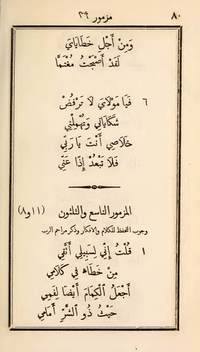 ٨٠ مزمور ٣٩
وَمِنْ أَجْلِ خَطَايَايَ
لَقَدْ أَصْبَحْتُ مُغْتَمًّا
٦ فَيَا مَوْلَايَ لَا تَرْفُضْ
شَكَايَاتِي وَتُهْمِلْنِي
خَلَاصِي أَنْتَ يَا رَبِّي
فَلَا تَبْعُدْ إِذًا عَنِّي
المزمور التاسع والثلثون (٨ و١١)
وجوب التحفظ للكلام والافكار وذكر مراحم الرب
١ قُلْتُ إِنِّي لِسَبِيلِي أَتَّقِي
مِنْ خَطَاهُ فِي كَلَامِي
أَجْعَلُ ٱلْكِمَامَ أَيْضًا لِفَمِي
حَيْثُ ذُو ٱلشَّرِّ أَمَامِي